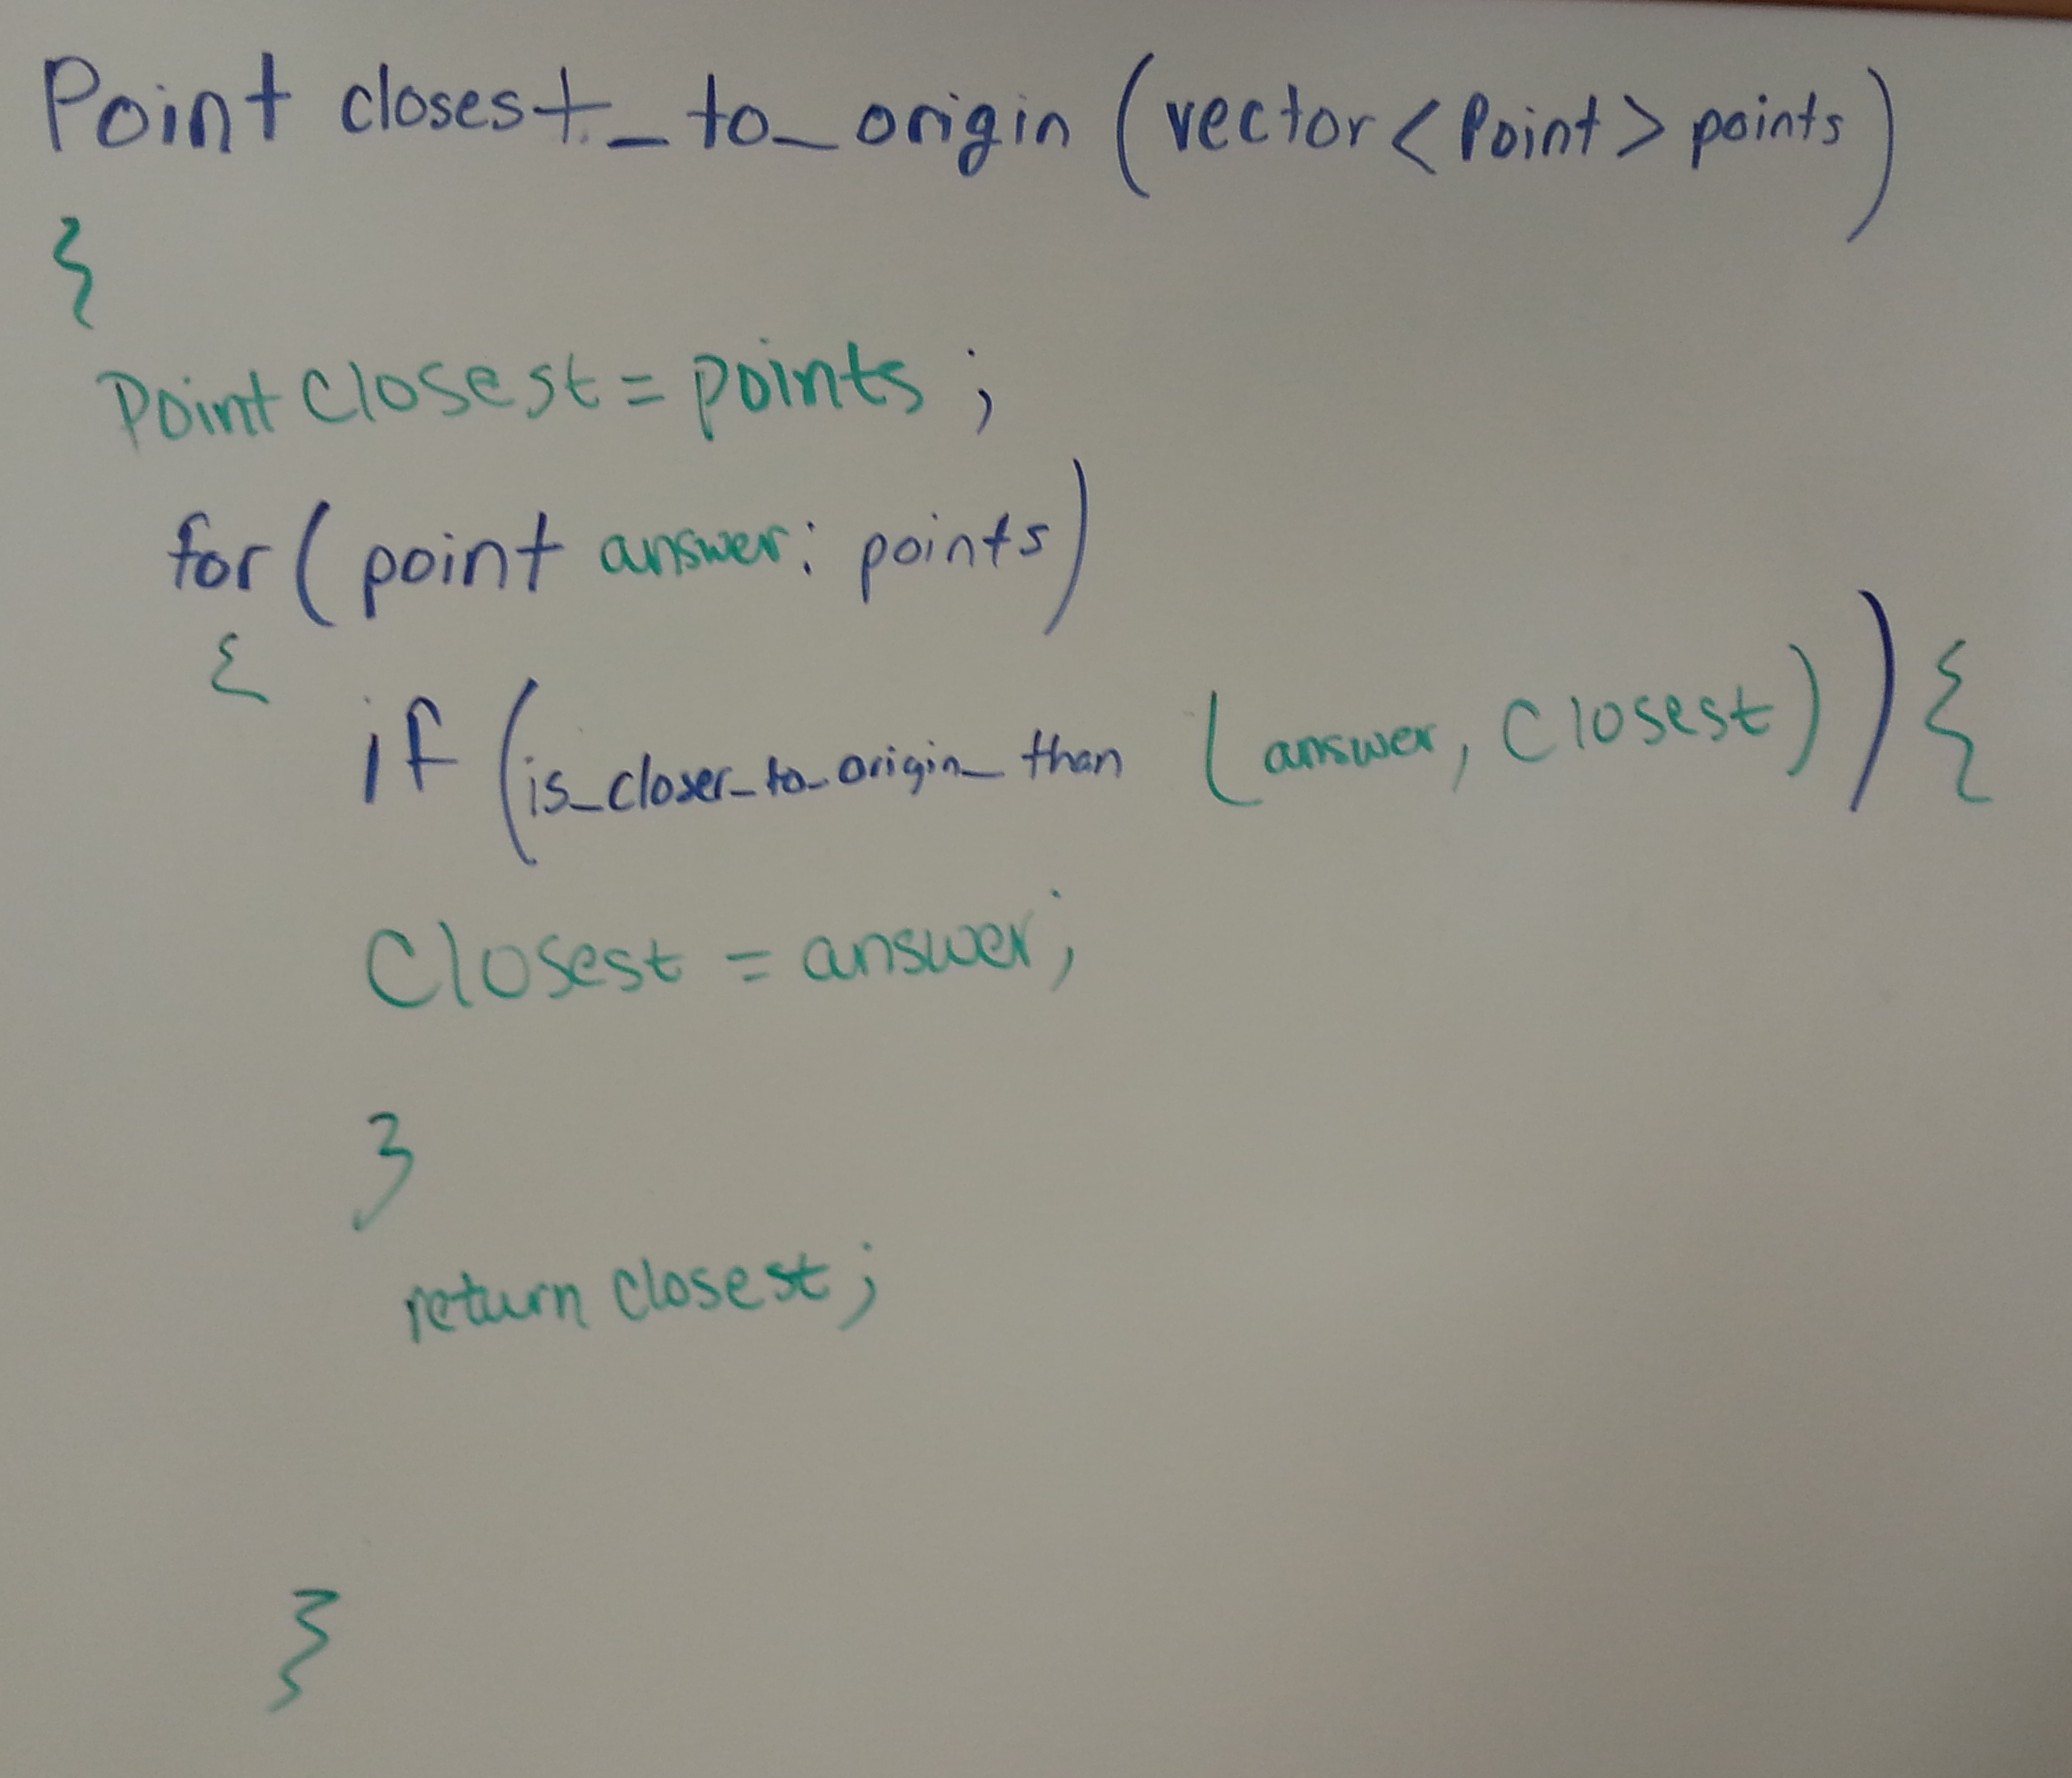 Point closest_to_origin (vector<Point> points)
{
Point closest = points;
for (point answer: points)
{
if (is_closer_to_origin_than (answer, closest)){
Closest = answer;
}
return closest;
}